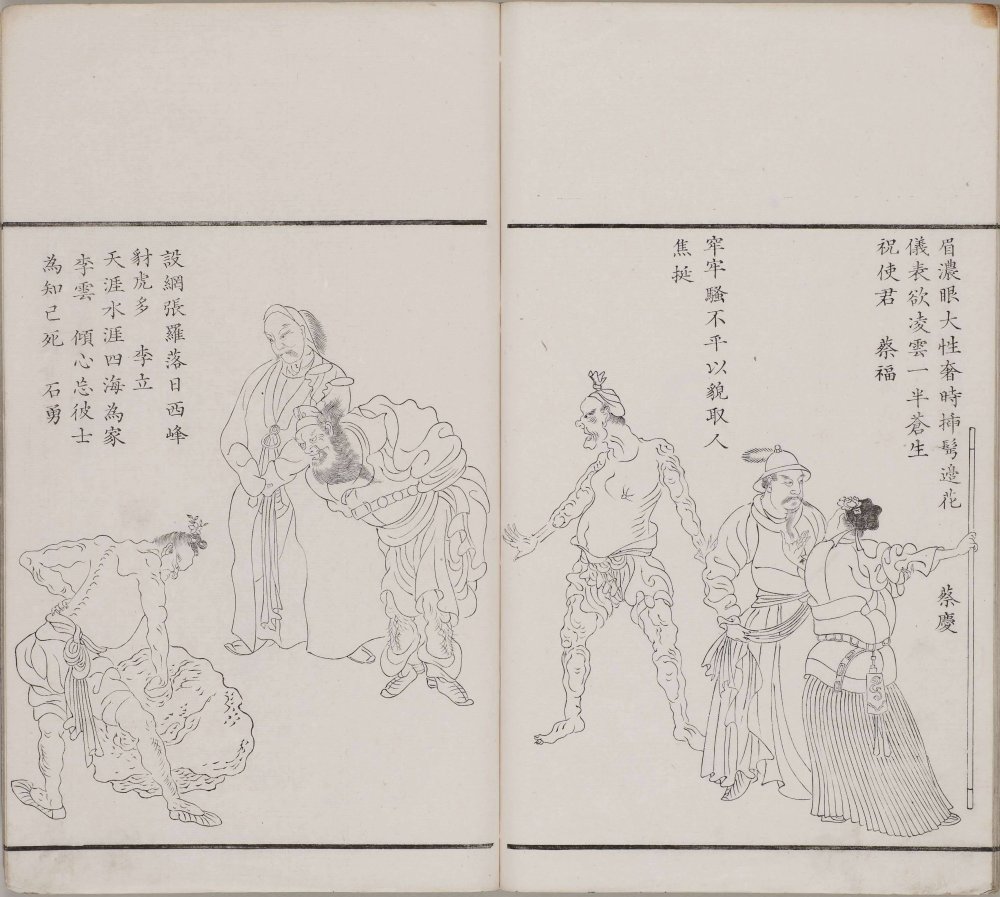 眉濃眼大性奢時揷鬂邉花　蔡慶
儀表欲凌雲一半蒼生
祝使君　蔡福
窂牢騷不平以貌取人
焦挺
設網張羅落日西峰
豺虎多　李立
天涯水涯四海為家
李雲　傾心忘彼士
為知己死　石勇